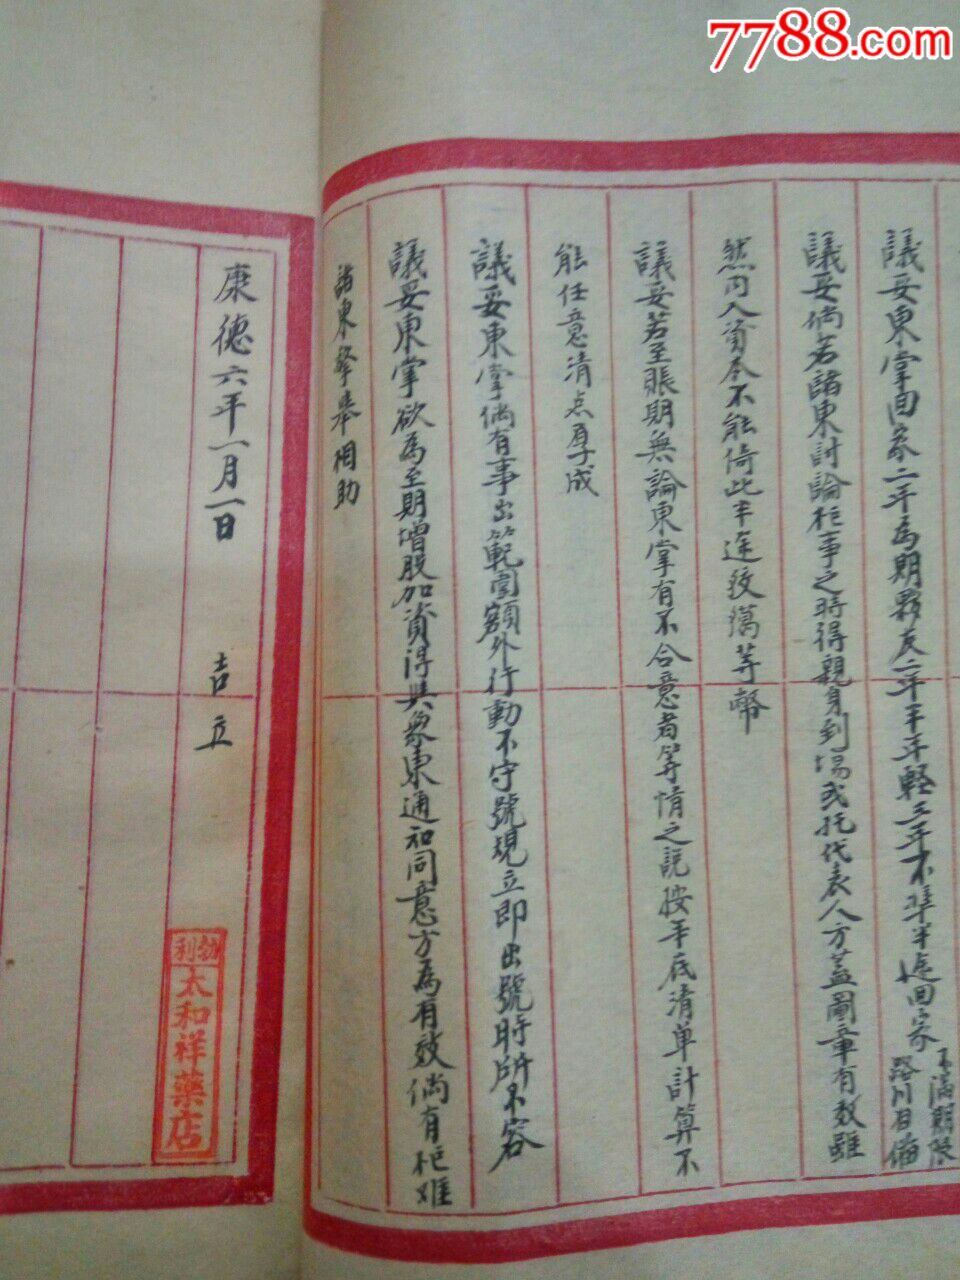 7788.com
議妥東掌回家二年為期夥友二年半年輕三年不準半途回家
不滿期限
路川自備
議妥倘若諸東討論柜事之時得親身到場或托代表人方蓋圖章有效雖
然內入資本不能倚此半途殺濿等幣
議妥若至賬期無論東掌有不合意者等情之說按年底清單計算不
能任意清点厚成
議妥東掌倘有事出範圍額外行動不守號規立即出號時所不容
議妥東掌欲為至期增股加資得與眾東通知同意方為有效倘有柜难
諸東擎舉相助
康德六年一月一日 吉立
勃利
太和祥藥店